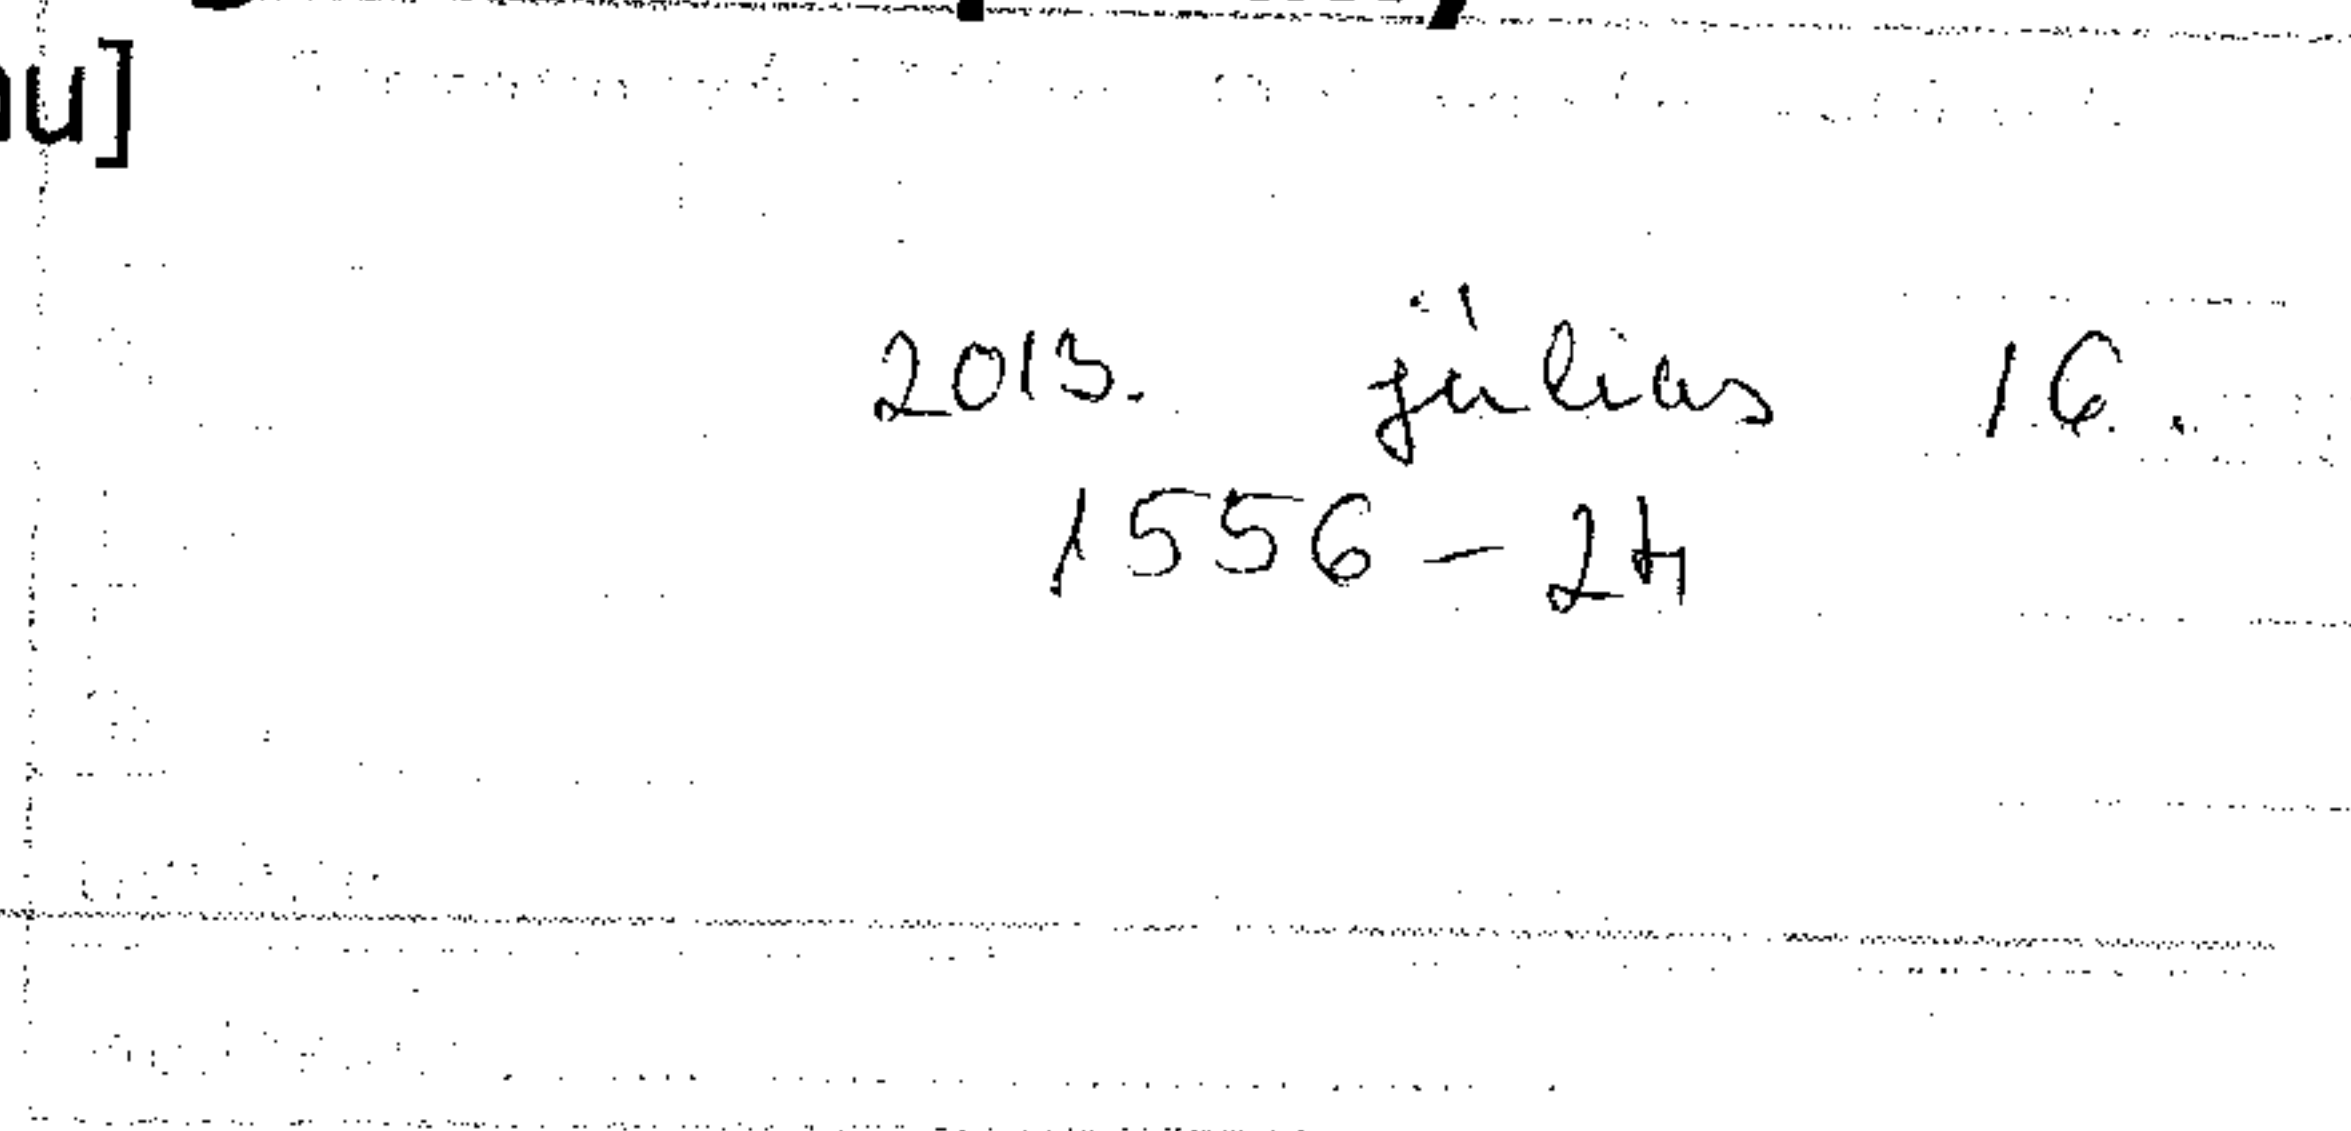 nu]
2013. július 16.
1556-24